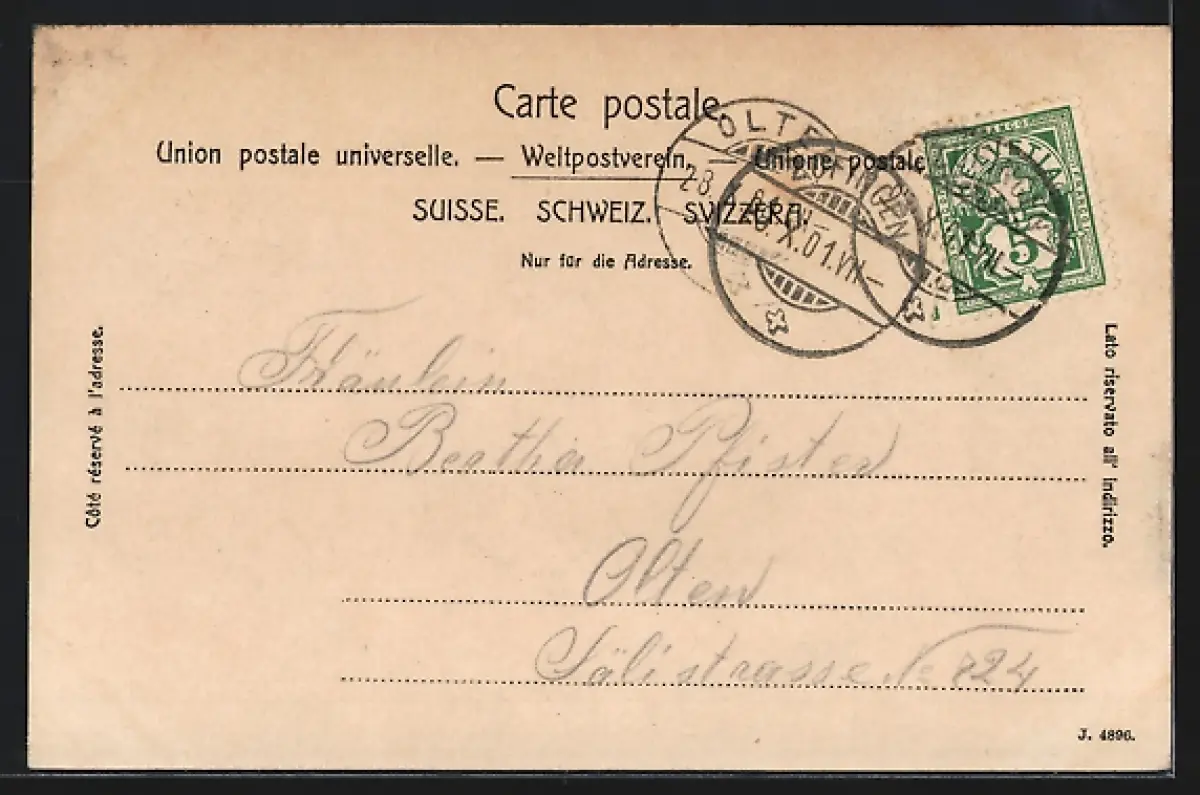 Carte postale.
Union postale universelle. — Weltpostverein. — Unione postale
SUISSE. SCHWEIZ. SVIZZERA.
Nur für die Adresse.
OLTEN
28.
ZOFINGEN
28.X.01.VII—
HELVETIA
FRANCO
5
Côté réservé à l'adresse.
Lato riservato all' indirizzo.
Fräulein
Bertha Pfister
Olten
Sälistrasse No 824
J. 4896.